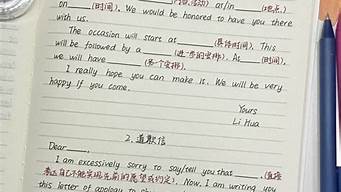 (内容/活动) at/in____(地点)
on____(时间). We would be honored to have you there
with us.
The occasion will start at____(具体时间). This
will be followed by a____(进一步的安排). At____(时间),
we will have____(多个安排).
I really hope you can make it. We will be very
happy if you come.
Yours
Li Hua
2. 道歉信
Dear____,
I am excessively sorry to say/tell you that____(直接
表达自己不能实现先前的愿望或约定). Now, I am writing you
this letter of apology to